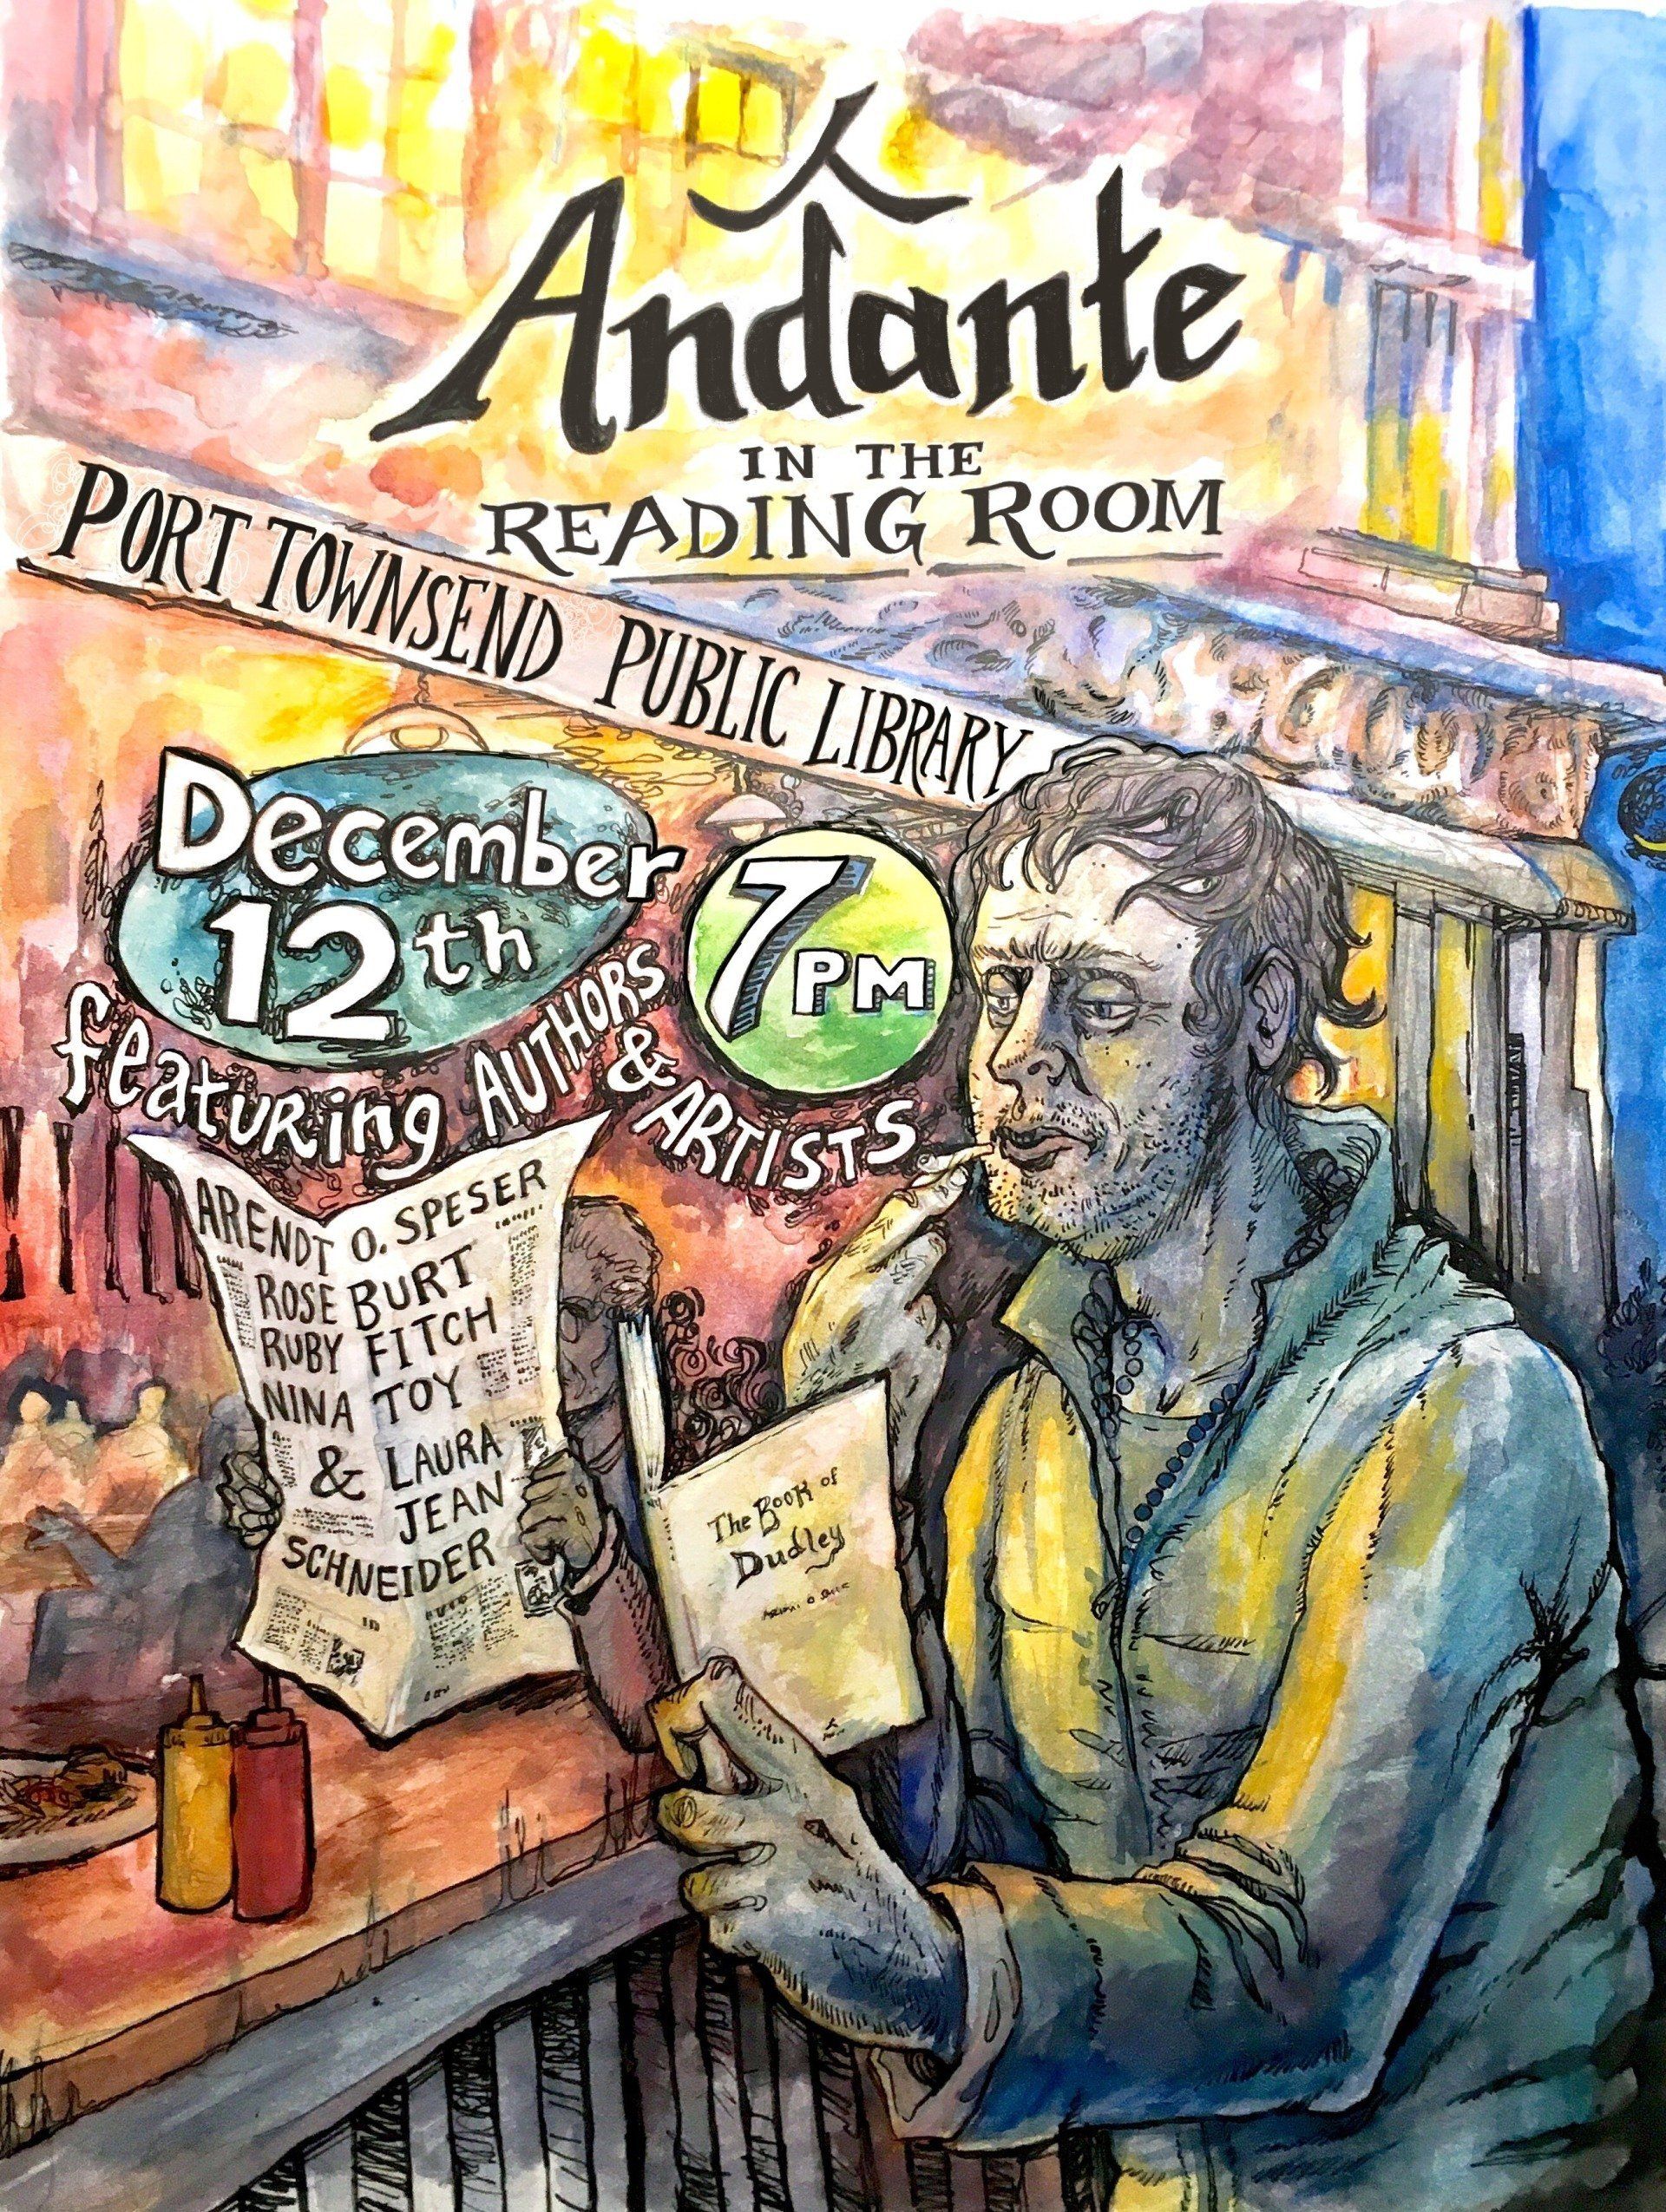 Andante
IN THE
READING ROOM
PORT TOWNSEND PUBLIC LIBRARY
December
12th
7PM
featuring AUTHORS
&
ARTISTS
ARENDT O. SPESER
ROSE BURT
RUBY FITCH
NINA TOY
& LAURA
JEAN
SCHNEIDER
The Book of
Dudley